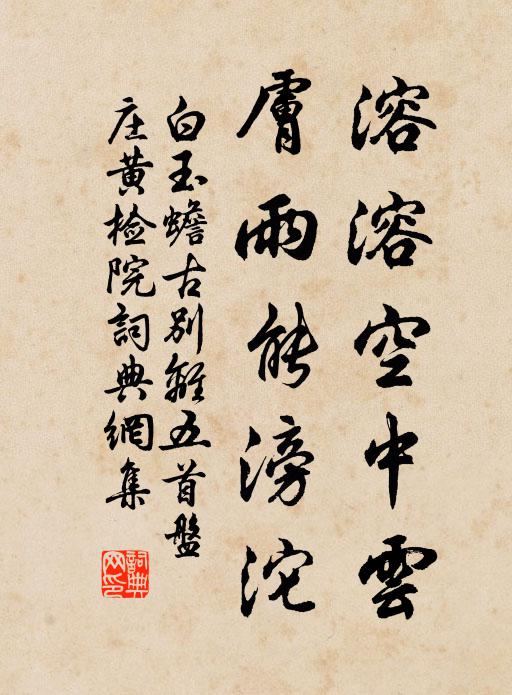 溶溶空中雲
膚雨能滂沱
白玉蟾古別離五首盤
庄黄检院詞典網集
詞典网印